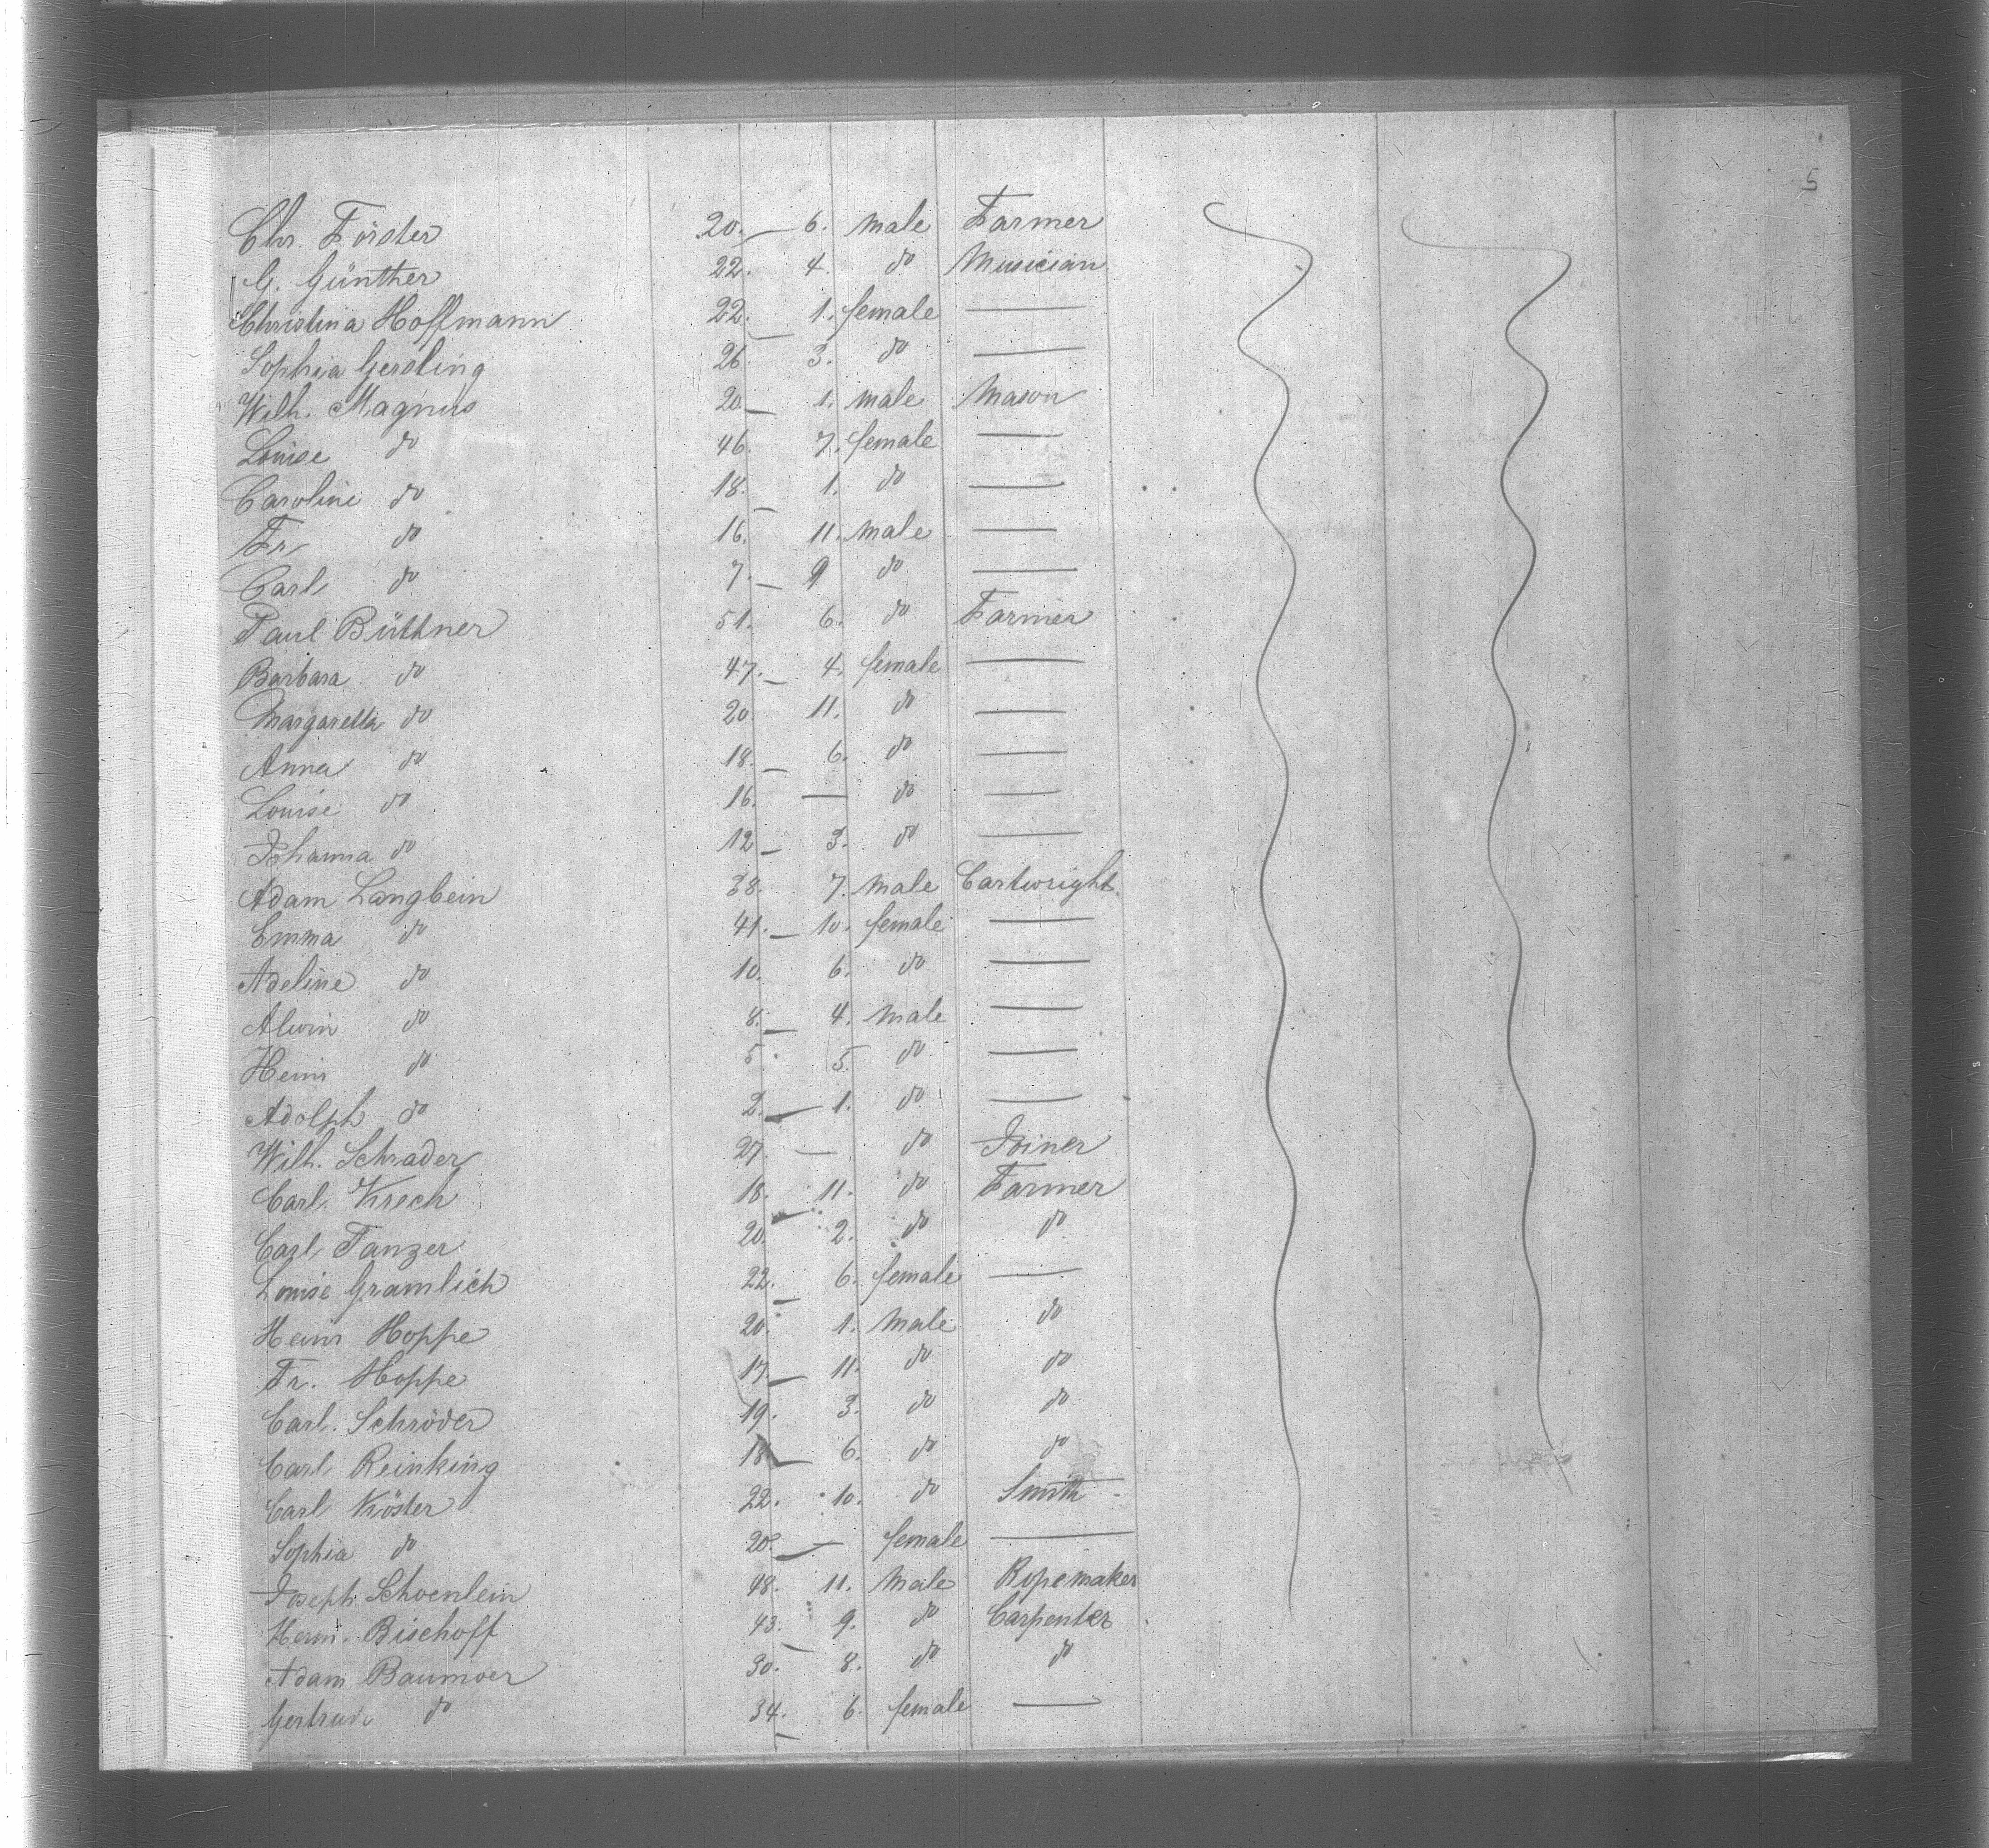 5
Chr. Förster 20. 6. male Farmer
G. Günther 22. 4. do Musician
Christina Hoffmann 22. 1. female —
Sophia Gersling 26. 3. do —
Wilh. Magnus 20. 1. male Mason
Louise do 46. 7. female —
Caroline do 18. 1. do —
Fr do 16. 11. male —
Carl do 7. 9 do —
Paul Büttner 51. 6. do Farmer
Barbara do 47. 4. female —
Margaretta do 20. 11. do —
Anna do 18. 6. do —
Louise do 16. — do —
Johanna do 12 3. do —
Adam Langbein 38. 7. male Cartwright.
Emma do 41. 10. female —
Adeline do 10. 6. do —
Alwin do 8. 4. male —
Heinr do 5. 5. do —
Adolph do 2. 1. do —
Wilh. Schrader 27. — do Joiner
Carl Krech 18. 11. do Farmer
Carl Tanzer 20. 2. do do
Louise Gramlich 22. 6. female —
Heinr Hoppe 20. 1. male do
Fr. Hoppe 17. 11. do do
Carl. Schröder 19. 3. do do
Carl Reinking 18 6. do do
Carl Köster 22. 10. do Smith
Sophia do 20. — female —
Joseph Schoenlein 48. 11. male Ropemaker
Herm. Bischoff 43. 9. do Carpenter
Adam Baumoer 30. 8. do do
Gertrude do 34. 6. female —